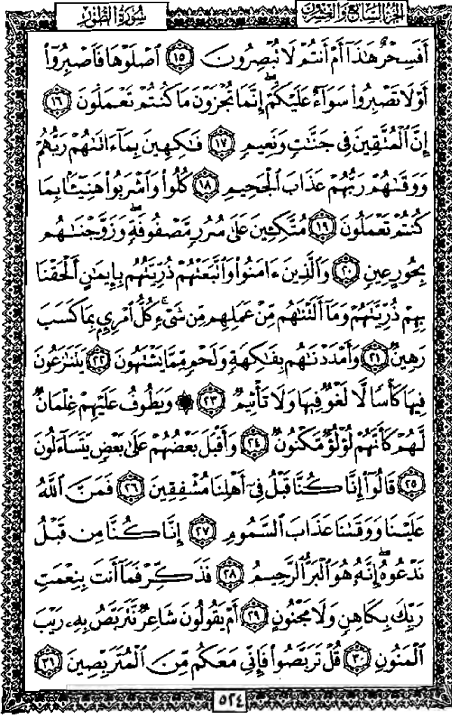 الجزء السابع والعشرون
سورة الطور
أَفَسِحْرٌ هَٰذَا أَمْ أَنتُمْ لَا تُبْصِرُونَ ١٥ ٱصْلَوْهَا فَٱصْبِرُوٓا۟
أَوْ لَا تَصْبِرُوا۟ سَوَآءٌ عَلَيْكُمْ ۖ إِنَّمَا تُجْزَوْنَ مَا كُنتُمْ تَعْمَلُونَ ١٦
إِنَّ ٱلْمُتَّقِينَ فِى جَنَّٰتٍ وَنَعِيمٍ ١٧ فَٰكِهِينَ بِمَآ ءَاتَىٰهُمْ رَبُّهُمْ
وَوَقَىٰهُمْ رَبُّهُمْ عَذَابَ ٱلْجَحِيمِ ١٨ كُلُوا۟ وَٱشْرَبُوا۟ هَنِيٓـًٔۢا بِمَا
كُنتُمْ تَعْمَلُونَ ١٩ مُتَّكِـِٔينَ عَلَىٰ سُرُرٍ مَّصْفُوفَةٍ ۖ وَزَوَّجْنَٰهُم
بِحُورٍ عِينٍ ٢٠ وَٱلَّذِينَ ءَامَنُوا۟ وَٱتَّبَعَتْهُمْ ذُرِّيَّتُهُم بِإِيمَٰنٍ أَلْحَقْنَا
بِهِمْ ذُرِّيَّتَهُمْ وَمَآ أَلَتْنَٰهُم مِّنْ عَمَلِهِم مِّن شَىْءٍ ۚ كُلُّ ٱمْرِئٍۭ بِمَا كَسَبَ
رَهِينٌ ٢١ وَأَمْدَدْنَٰهُم بِفَٰكِهَةٍ وَلَحْمٍ مِّمَّا يَشْتَهُونَ ٢٢ يَتَنَٰزَعُونَ
فِيهَا كَأْسًا لَّا لَغْوٌ فِيهَا وَلَا تَأْثِيمٌ ٢٣ ۞ وَيَطُوفُ عَلَيْهِمْ غِلْمَانٌ
لَّهُمْ كَأَنَّهُمْ لُؤْلُؤٌ مَّكْنُونٌ ٢٤ وَأَقْبَلَ بَعْضُهُمْ عَلَىٰ بَعْضٍ يَتَسَآءَلُونَ
٢٥ قَالُوٓا۟ إِنَّا كُنَّا قَبْلُ فِىٓ أَهْلِنَا مُشْفِقِينَ ٢٦ فَمَنَّ ٱللَّهُ
عَلَيْنَا وَوَقَىٰنَا عَذَابَ ٱلسَّمُومِ ٢٧ إِنَّا كُنَّا مِن قَبْلُ
نَدْعُوهُ ۖ إِنَّهُۥ هُوَ ٱلْبَرُّ ٱلرَّحِيمُ ٢٨ فَذَكِّرْ فَمَآ أَنتَ بِنِعْمَتِ
رَبِّكَ بِكَاهِنٍ وَلَا مَجْنُونٍ ٢٩ أَمْ يَقُولُونَ شَاعِرٌ نَّتَرَبَّصُ بِهِۦ رَيْبَ
ٱلْمَنُونِ ٣٠ قُلْ تَرَبَّصُوا۟ فَإِنِّى مَعَكُم مِّنَ ٱلْمُتَرَبِّصِينَ ٣١
٥٢٤